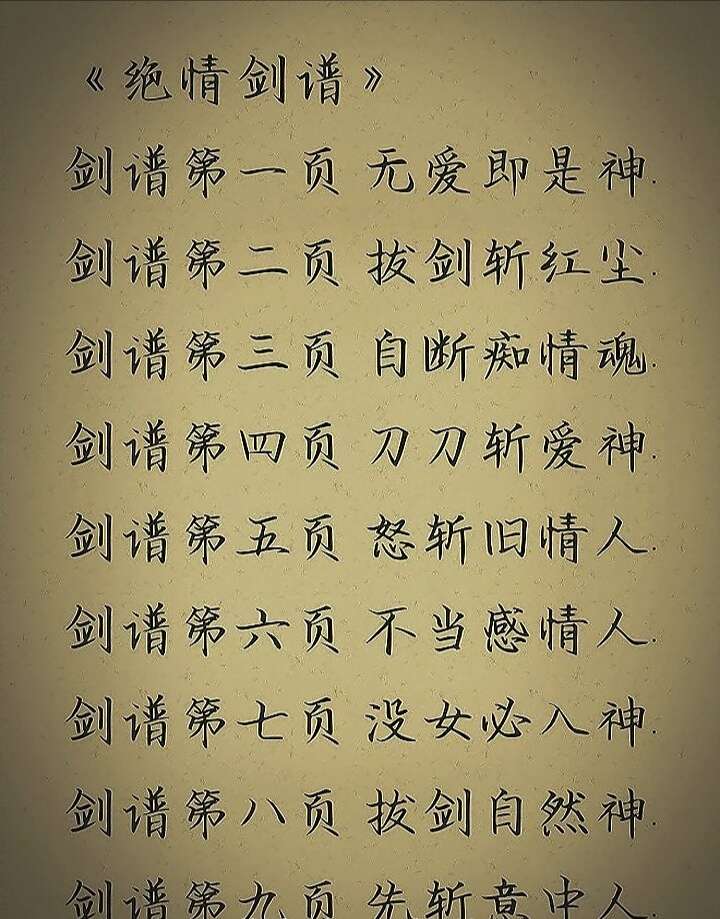 《绝情剑谱》
剑谱第一页 无爱即是神.
剑谱第二页 拔剑斩红尘.
剑谱第三页 自断痴情魂.
剑谱第四页 刀刀斩爱神.
剑谱第五页 怒斩旧情人.
剑谱第六页 不当感情人.
剑谱第七页 没女必入神.
剑谱第八页 拔剑自然神.
剑谱第九页 先斩意中人.